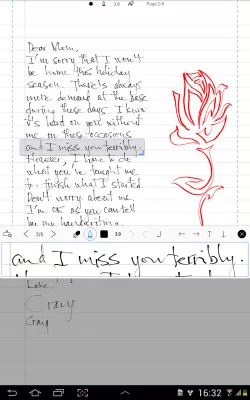 3.0
Page 2/6
Dear Mom,
I'm sorry that I won't
be home this holiday
season. There's always
more demand at the base
during these days. I know
it's hard on you without
me on these occasions
and I miss you terribly.
However, I have to do
what you've taught me
to. finish what I started
Don't worry about me.
I'm OK as you can tell
by my handwriting.
2/6
3.0
and I miss you terribly.
Love.
Craig
16:32